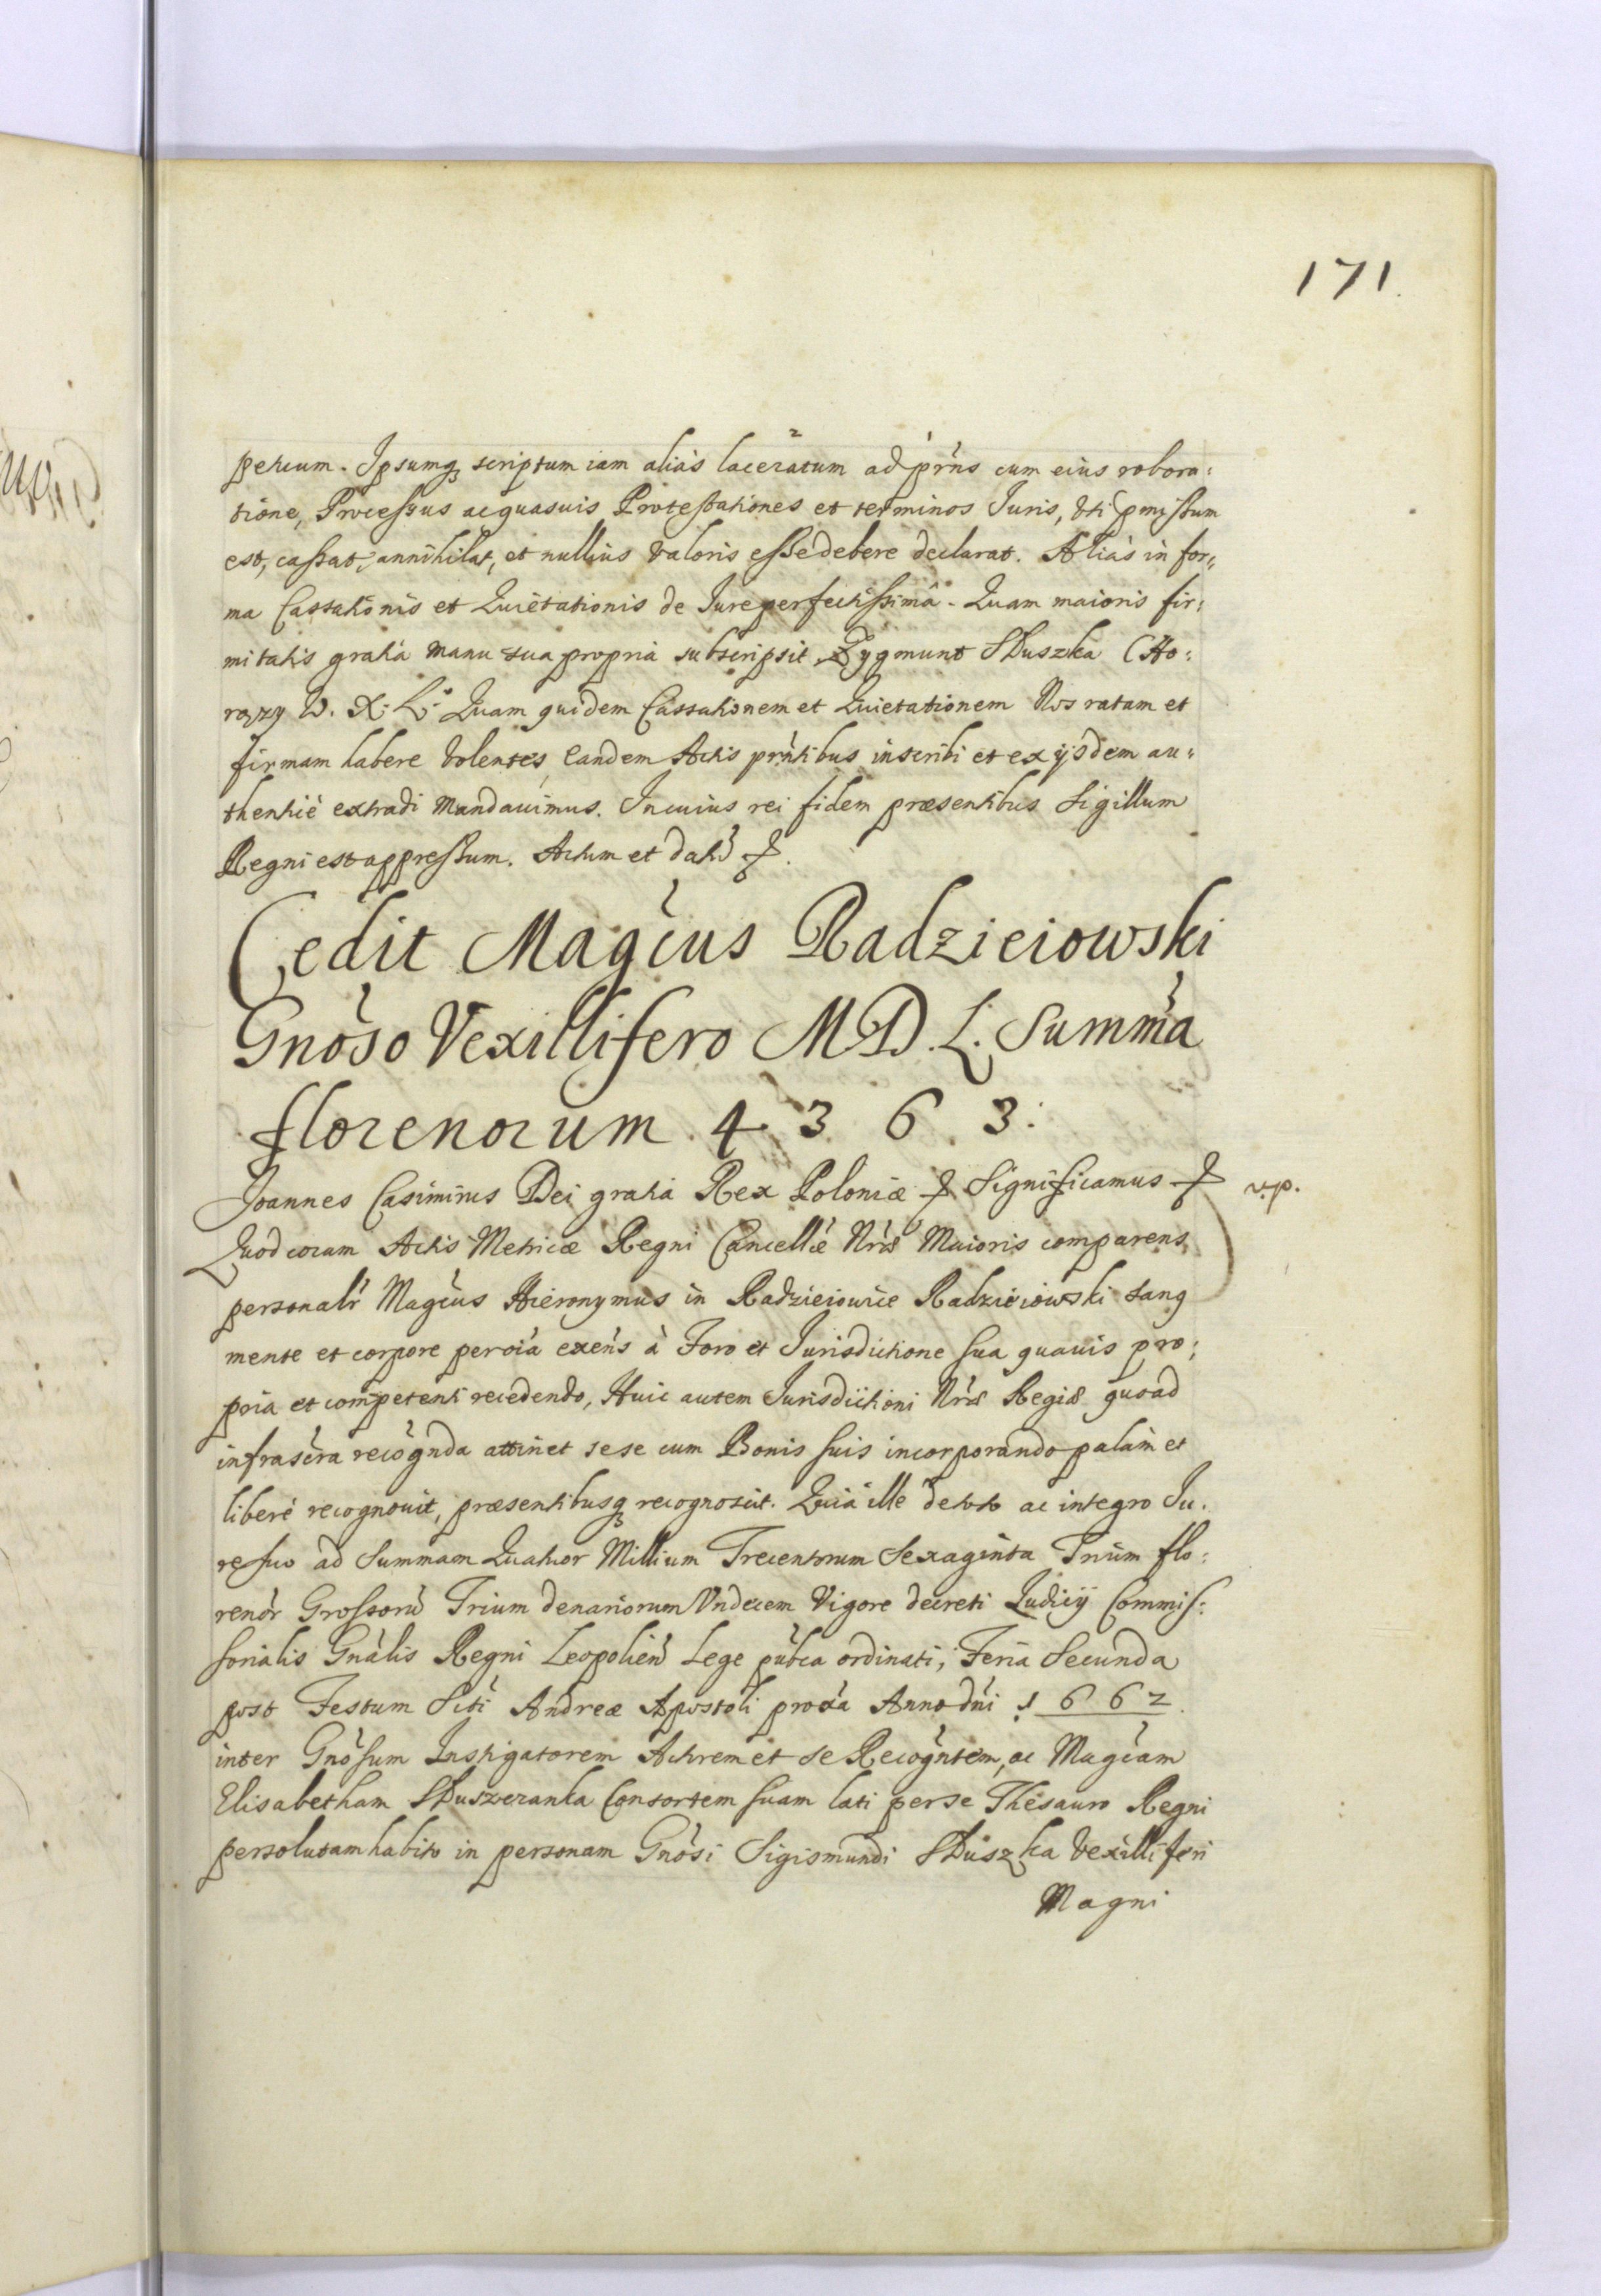 171.
petuum. Ipsumq scriptum iam aliàs laceratum ad pr̀ns cum eius robora:
tione, Processus ac quasuis Protestationes et terminos Iuris, vti pmissum
est, cassat, annihilat, et nullius valoris esse debere declarat. Aliàs in for:
ma Cassationis et Quietationis de Iure perfectissimâ. Quam maioris fir:
mitatis gratia manu sua propria subscripsit Zygmunt Słuszka Cho:
rązy W. X. L. Quam quidem Cassationem et Quietationem Nos ratam et
firmam habere volentes, eandem Actis pr̀ntibus inscribi et ex ijsdem au:
thenticè extradi mandauimus. In cuius rei fidem præsentibus Sigillum
Regni est appressum. Actum et datũ
Cedit Magcùs Radzieiowski
Gnòso Vexillifero M D. L. Summà
florenorum 4 3 6 3.
Joannes Casimirus Dei gratia Rex Poloniæ Significamus v.p.
Quod coram Actis Metricæ Regni Cancellæ̀ Nr̀æ Maioris comparens
personalr̀ Magcùs Hieronymus in Radzieiowice Radzieiowski sanq
mente et corpore peroìa exeǹs à Foro et Jurisdictione sua quauis pro:
pria et competenti recedendo, Huic autem Jurisdictioni Nr̀æ Regiæ quoad
infrascr̀a recògnda attinet sese cum Bonis suis incorporando palàm et
liberè recognouit, præsentibusq recognoscit. Quia ille de toto ac integro Ju:
re suo ad Summam Quatuor Millium Trecentorum Sexaginta Trium flo:
renòr Grossorũ Trium denariorum Vndecem Vigore decreti Judicij Commis:
sorialis Gnàlis Regni Leopolieñ Lege pùbca ordinati, Feria Secunda
post Festum Sctì Andreæ Apostoli proxa Anno dnì 1662.
inter Gnòsum Instigatorem Actorem et se Recògntem, ac Magcàm
Elisabetham Słuszczanka Consortem suam lati per se Thesauro Regni
persolutam habito in personam Gnòsi Sigismundi Słuszka Vexilliferi
Magni